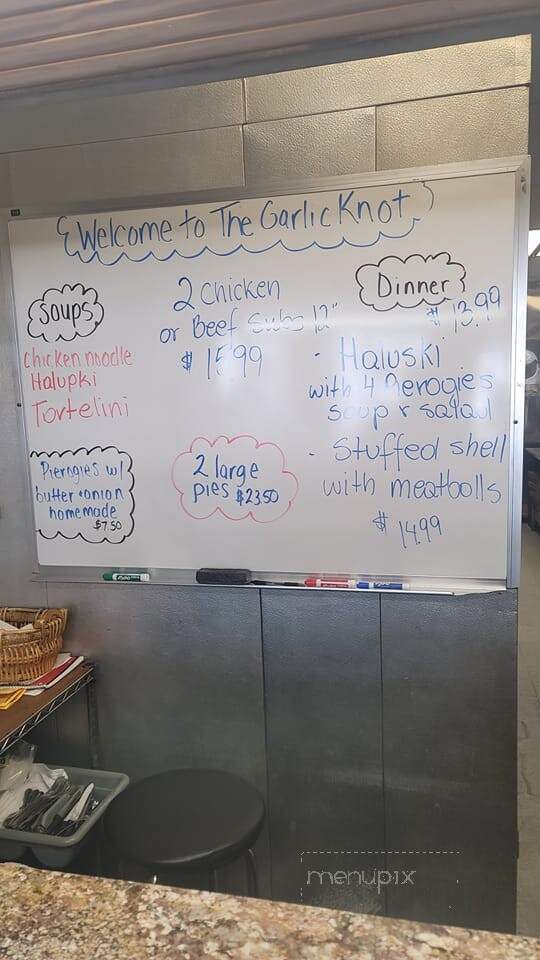 Welcome to The Garlic Knot
Soups
Chicken noodle
Halupki
Tortelini
Pierogies w/
butter + onion
homemade
$7.50
2 Chicken
or Beef Subs 12"
$15.99
2 large
pies $23.50
Dinner
$13.99
- Haluski
with 4 Perogies
soup & salad
- Stuffed shell
with meatballs
$14.99
menupix